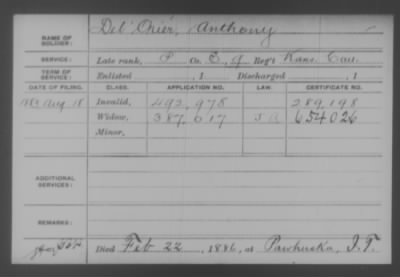 NAME OF SOLDIER: Del'Orier, Anthony
SERVICE: Late rank, P Co. E, 9 Reg't Kans. Cav.
TERM OF SERVICE: Enlisted , 1 Discharged , 1
DATE OF FILING. CLASS. APPLICATION NO. LAW. CERTIFICATE NO.
Aug. 18 Invalid, 492,978 289,198
Widow, 387,017 654026
Minor,
ADDITIONAL SERVICES:
REMARKS:
Died Feb 22, 1886, at Pawhuska, I.T.